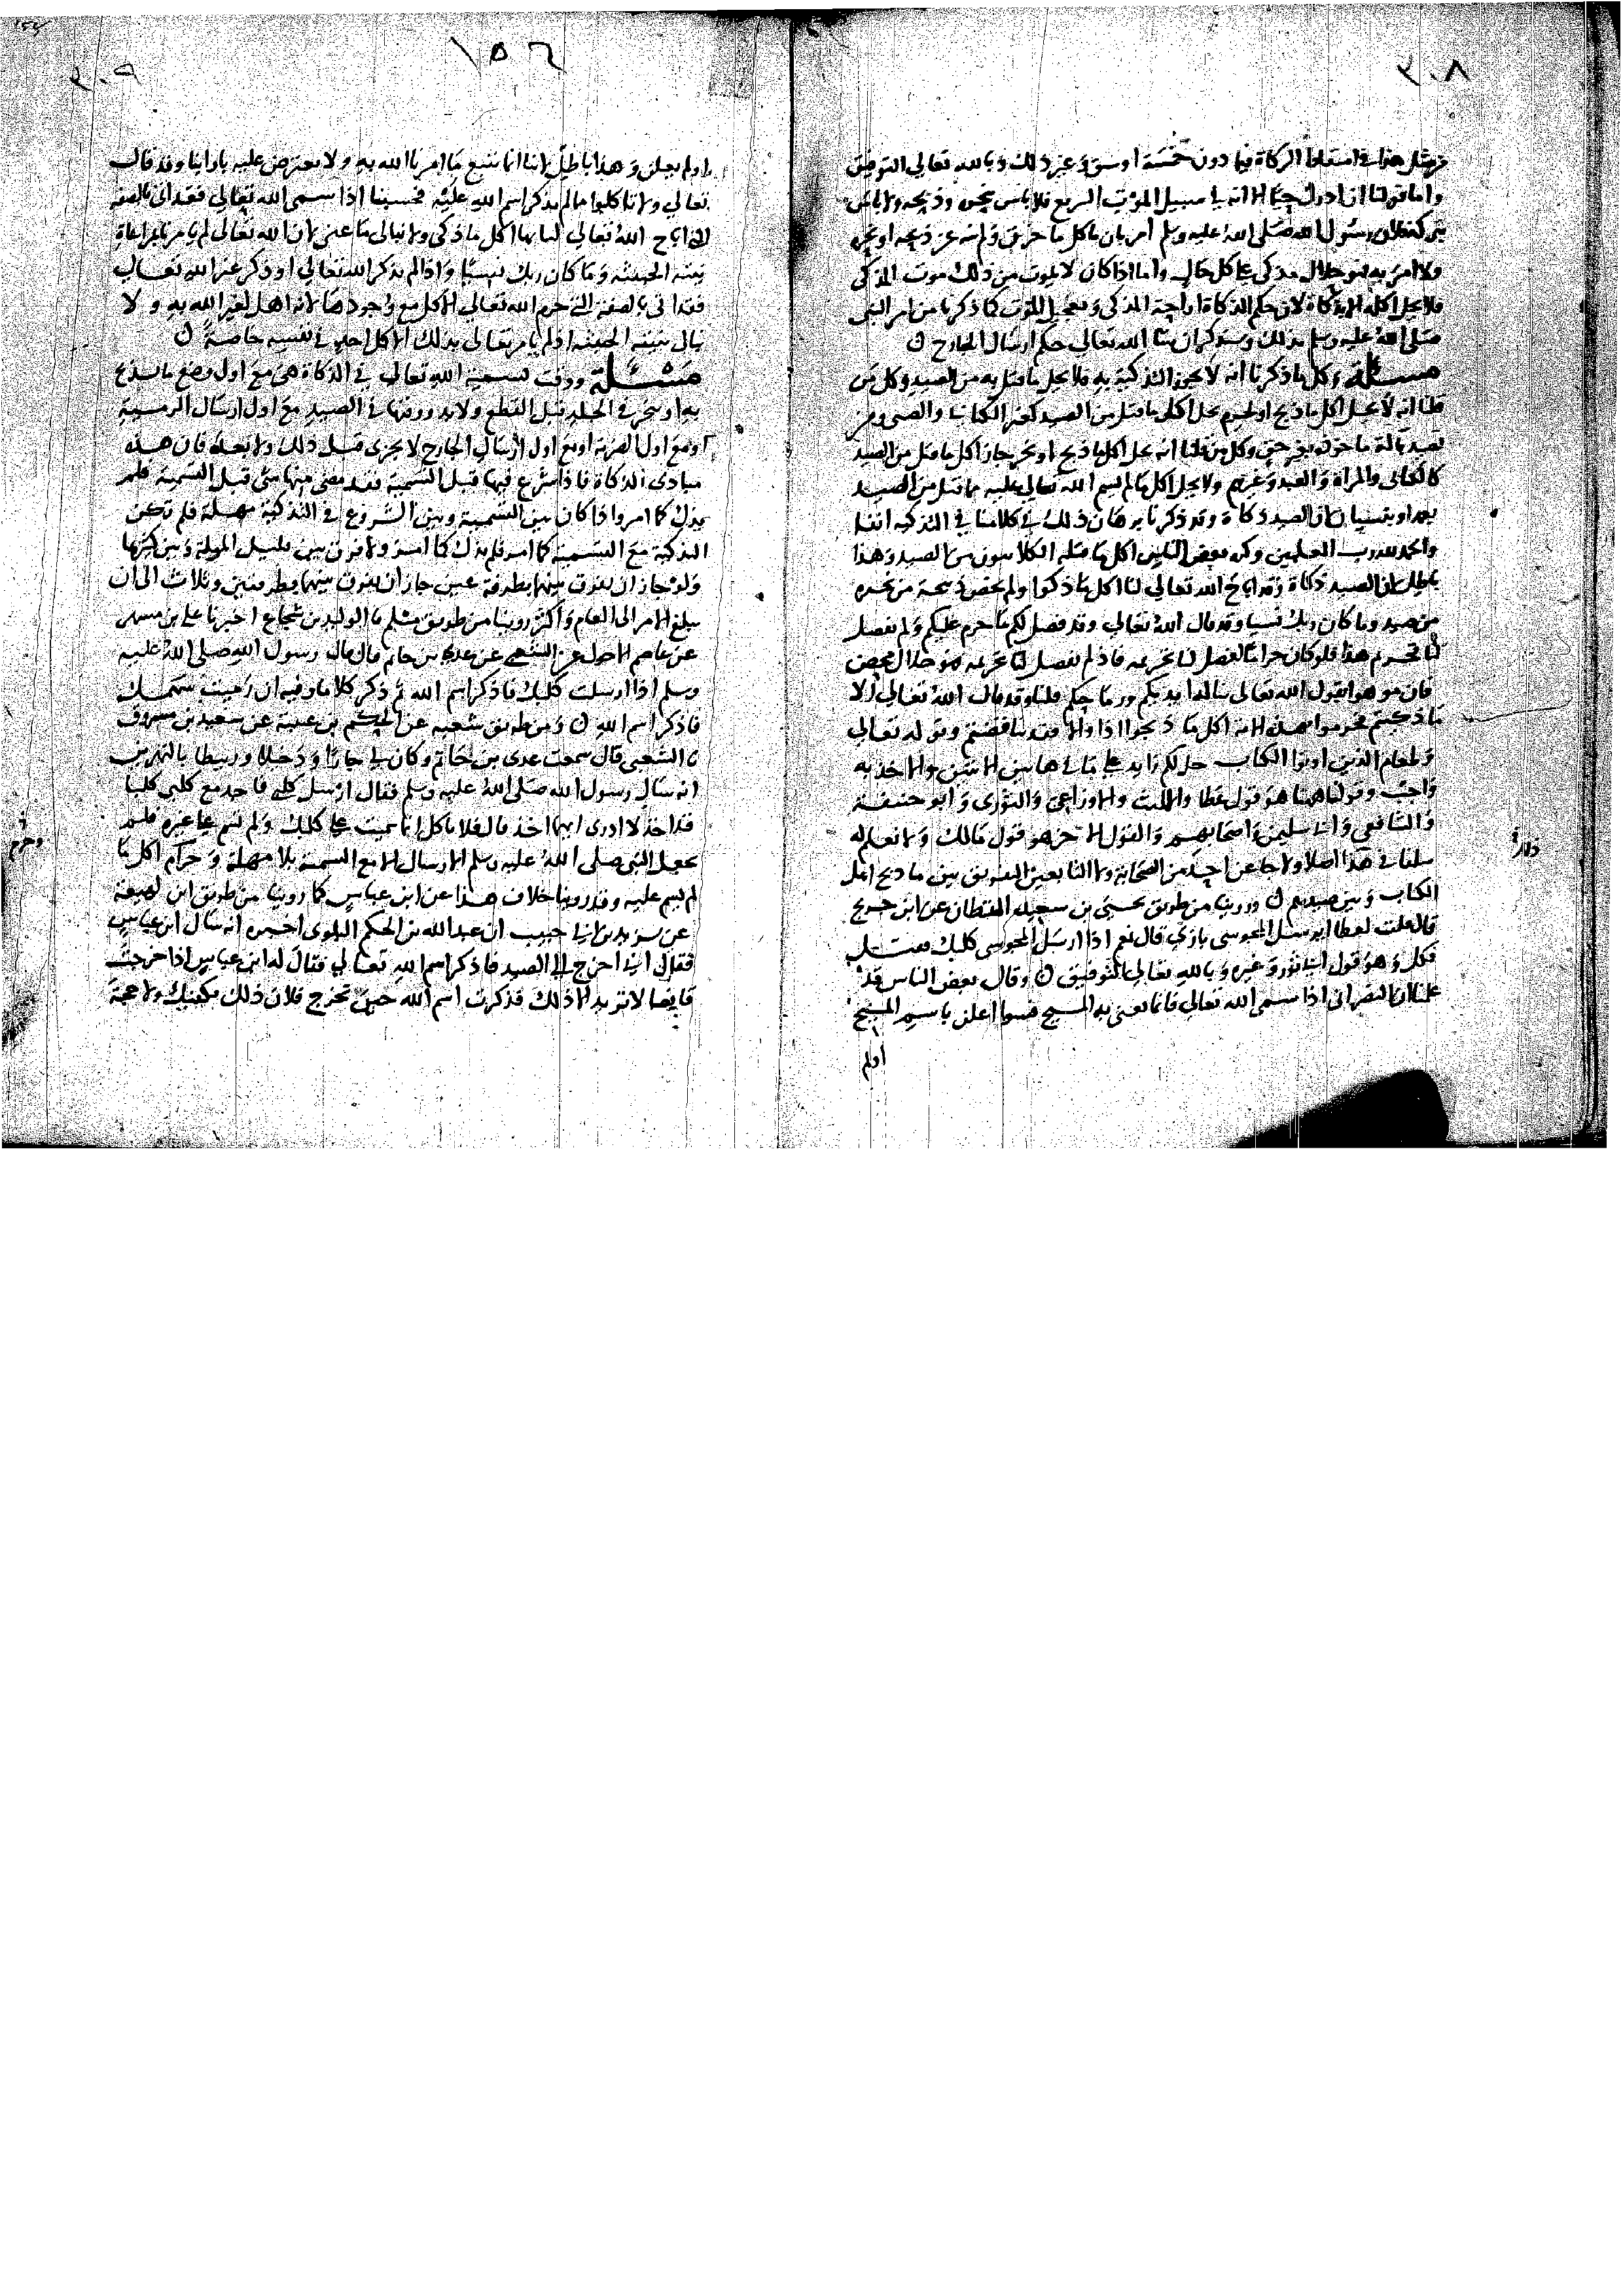 ٣٠٨
من مثل هذا في اسقاط الزكاة فيما دون خمسة اوسق وغير ذلك وبالله تعالى التوفيق
واما قولنا ان ادرك حيا الا انه في سبيل الموت السريع فلا باس بنحره وذبحه ولا باس
بتركه فلان رسول الله صلى الله عليه وسلم امر بان ياكل ما خزق ولم ينه عن ذبحه او نحره
ولا امر به فهو حلال مذكى على كل حال واما اذا كان لا يموت من ذلك موت المذكى
فلا يحل اكله الا بذكاة لان حكم الذكاة اراحة المذكى وتعجيل الموت كما ذكرنا من امر النبي
صلى الله عليه وسلم بذلك وسنذكر ان شا الله تعالى حكم ارسال الجارح
مسئلة وكل ما ذكرنا انه لا يجوز التذكية به فلا يحل ما قتل به من الصيد وكل من
قلنا انه لا يحل اكل ما ذبح او نحر لم يحل اكل ما قتل من الصيد كغير الكتابي والصبي ومن
تصيد بالة ماخوذة بغير حق وكل من قلنا انه يحل اكل ما ذبح او نحر جاز اكل ما قتل من الصيد
كالكتابي والمراة والعبد وغيرهم ولا يحل اكل ما لم يسم الله تعالى عليه مما قتل من الصيد
بعمد او بنسيان لان الصيد ذكاة وقد ذكرنا برهان ذلك في كلامنا في التذكية انفا
والحمد لله رب العلمين وكره بعض الناس اكل ما قتله الكتابيون من الصيد وهذا
باطل لان الصيد ذكاة وقد اباح الله تعالى لنا اكل ما ذكوا ولم يخص ذبيحة من نحيرة
من صيد وما كان ربك نسيا وقد قال الله تعالى وقد فصل لكم ما حرم عليكم ولم يفصل
لنا تحريم هذا فلو كان حراما لفصل لنا تحريمه فاذ لم يفصل لنا تحريمه فهو حلال محض
فان موهوا بقول الله تعالى تناله ايديكم ورماحكم قلنا وقد قال الله تعالى الا
ما ذكيتم فحرموا بهذه الاية اكل ما ذبحوا اذا والا فقد تناقضتم وقوله تعالى
وطعام الذين اوتوا الكتاب حل لكم زايد على ما في هاتين الايتين والاخذ به
واجب وقولنا ههنا هو قول عطا والليث والاوزاعي والثوري وابو حنيفة
والشافعي وابي سليمن واصحابهم والقول الاخر هو قول مالك ولا نعلم له
سلفا في هذا اصلا ولا جا عن احد من الصحابة ولا التابعين التفريق بين ما ذبح اهل
الكتاب وبين صيدهم وروينا من طريق يحيى بن سعيد القطان عن ابن جريج
قال قلت لعطا ايرسل المجوسي بازي قال نعم اذا ارسل المجوسي كلبك فقتل
فكل وهو قول ابي ثور وغيره وبالله تعالى التوفيق وقال بعض الناس قد
علمنا ان النصراني اذا سمى الله تعالى فانما يعني به المسيح فسوا اعلن باسم المسيح
اولم
١٥٦
٣٠٩
او لم يعلن وهذا باطل لاننا انما نتبع ما امرنا الله به ولا نعترض عليه باراينا وقد قال
تعالى ولا تاكلوا مما لم يذكر اسم الله عليه فحسبنا اذا سمى الله تعالى فقد اتى بالصفة
التي اباح الله تعالى لنا بها اكل ما ذكى ولا نبالي ما عنى لان الله تعالى لم يامرنا بمراعاة
نيته الخبيثة وما كان ربك نسيا واذا لم يذكر الله تعالى او ذكر غير الله تعالى
فقد اتى بالصفة التي حرم الله تعالى الاكل مع وجودها لانه اهل لغير الله به ولا
نبالي بنيته الخبيثة اذ لم يامر تعالى بذلك الاكل احد في نفسه خاصة
مسئلة ووقت تسمية الله تعالى في الذكاة هي مع اول وضع ما يذبح
به او ينحر في الجلد قبل القطع ولا بد ووقتها في الصيد مع اول ارسال الرمية
او مع اول الضربة او مع اول ارسال الجارح لا يجزى قبل ذلك ولا بعده فان هذه
مبادى الذكاة فاذا شرع فيها قبل التسمية فقد مضى منها شي قبل التسمية فلم
يذك كما امر واذا كان بين التسمية وبين الشروع في التذكية مهلة فلم تكن
التذكية مع التسمية كما امر فلم يذك كما امر ولا فرق بين قليل المهلة وبين كثيرها
ولو جاز ان يفرق بينهما بطرفة عين جاز ان يفرق بينهما بطرفتين وثلاث الى ان
يبلغ الامر الى العام واكثر روينا من طريق مسلم نا الوليد بن شجاع اخبرنا علي بن مسهر
عن عاصم الاحول عن الشعبي عن عدي بن حاتم قال قال رسول الله صلى الله عليه
وسلم اذا ارسلت كلبك فاذكر اسم الله ثم ذكر كلاما وفيه ان رميت سهمك
فاذكر اسم الله ومن طريق شعبة عن الحكم بن عتيبة عن سعيد بن مسروق
نا الشعبي قال سمعت عدي بن حاتم وكان لي جارا ودخيلا وربيطا بالنهرين
انه سال رسول الله صلى الله عليه وسلم فقال ارسل كلبي فاجد مع كلبي كلبا
قد اخذ لا ادري ايهما اخذ قال فلا تاكل انما سميت على كلبك ولم تسم على غيره فلم
يجعل النبي صلى الله عليه وسلم الارسال الا مع التسمية بلا مهلة وحرام اكل ما
لم يسم عليه وقد روينا خلاف هذا عن ابن عباس كما روينا من طريق ابن لهيعة
عن يزيد بن ابي حبيب ان عبد الله بن الحكم البلوي اخبره انه سال ابن عباس
فقال اني اخرج الى الصيد فاذكر اسم الله تعالى فقال له ابن عباس اذا خرجت
قانصا لا تريد الا ذلك فذكرت اسم الله حين تخرج فلان ذلك يكفيك ولا حجة
وحرم